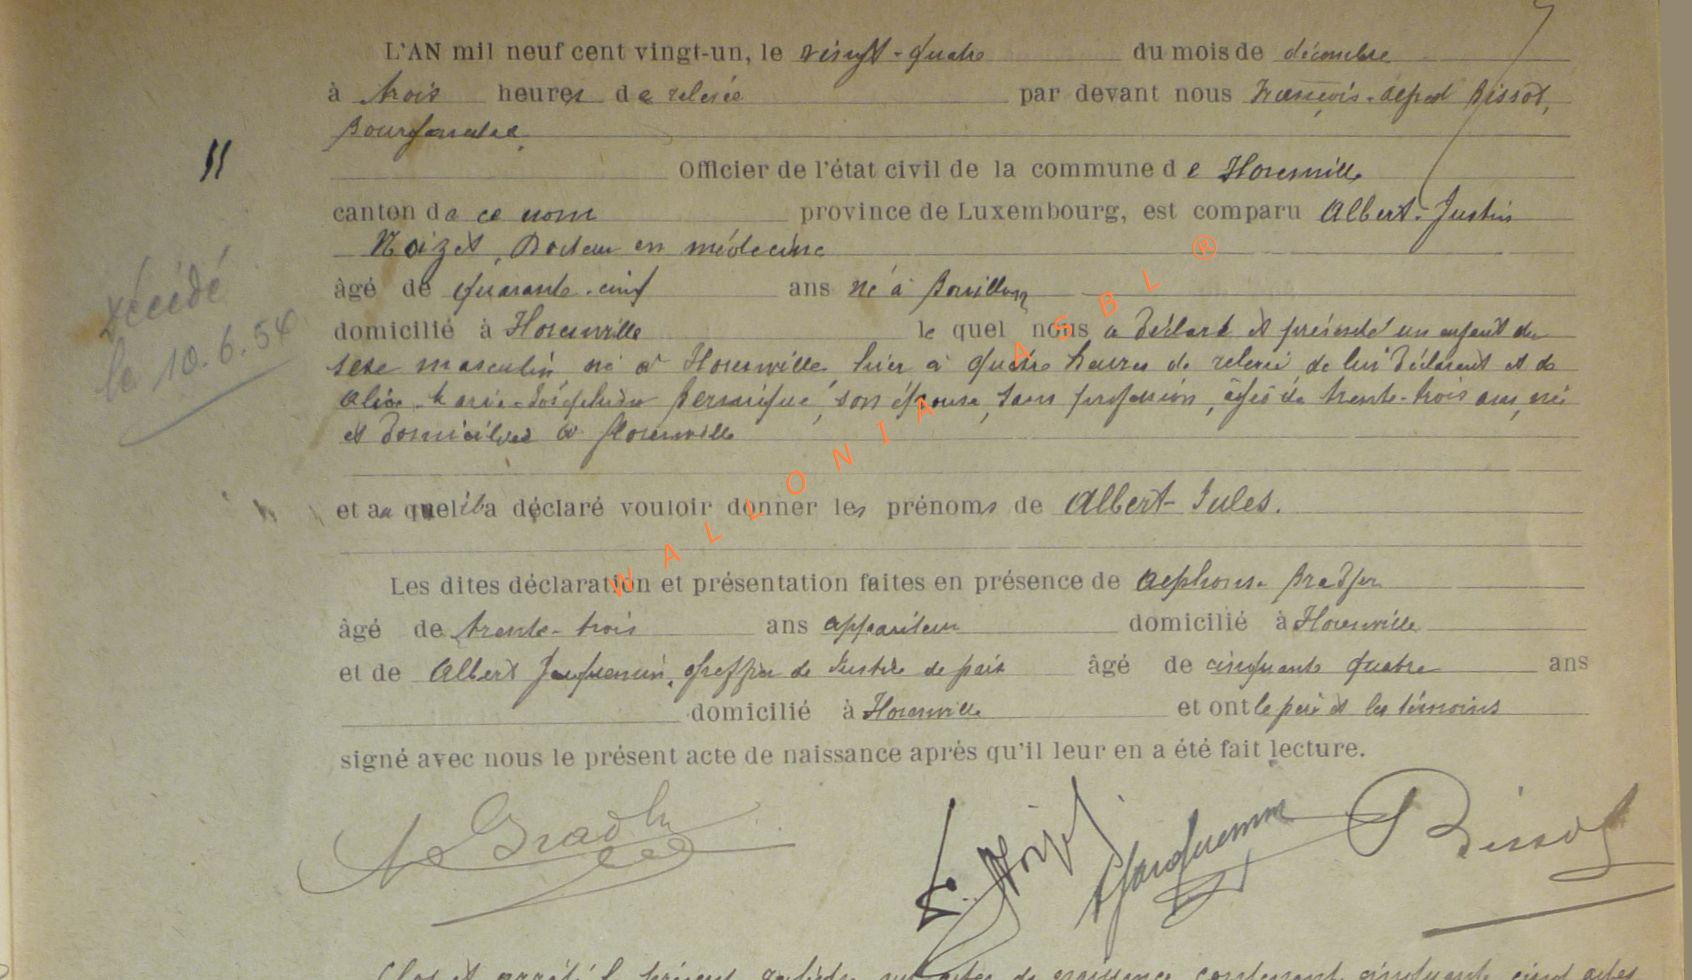 L'AN mil neuf cent vingt-un, le vingt-quatre du mois de décembre
à trois heures de relevée par devant nous François-Alfred Bissot,
Bourgmestre,
Officier de l'état civil de la commune de Florenville
11
canton de ce nom province de Luxembourg, est comparu Albert-Justin
Noizet, Docteur en médecine
âgé de quarante-cinq ans né à Bouillon
domicilié à Florenville lequel nous a déclaré et présenté un enfant du
sexe masculin né à Florenville, hier à quatre heures de relevée de lui déclarant et de
Alice-Maria-Joséphine son épouse, sans profession, âgée de trente-trois ans, née
et domiciliée à Florenville
Décédé
le 10.6.54
et auquel il a déclaré vouloir donner les prénoms de Albert-Jules.
Les dites déclaration et présentation faites en présence de Alphonse
âgé de trente-trois ans appariteur domicilié à Florenville
et de Albert Jacquemin, greffier de Justice de paix âgé de cinquante quatre ans
domicilié à Florenville et ont le père et les témoins
signé avec nous le présent acte de naissance aprés qu'il leur en a été fait lecture.
Noizet
AJacquemin
Bissot
WALLONIA ASBL ®